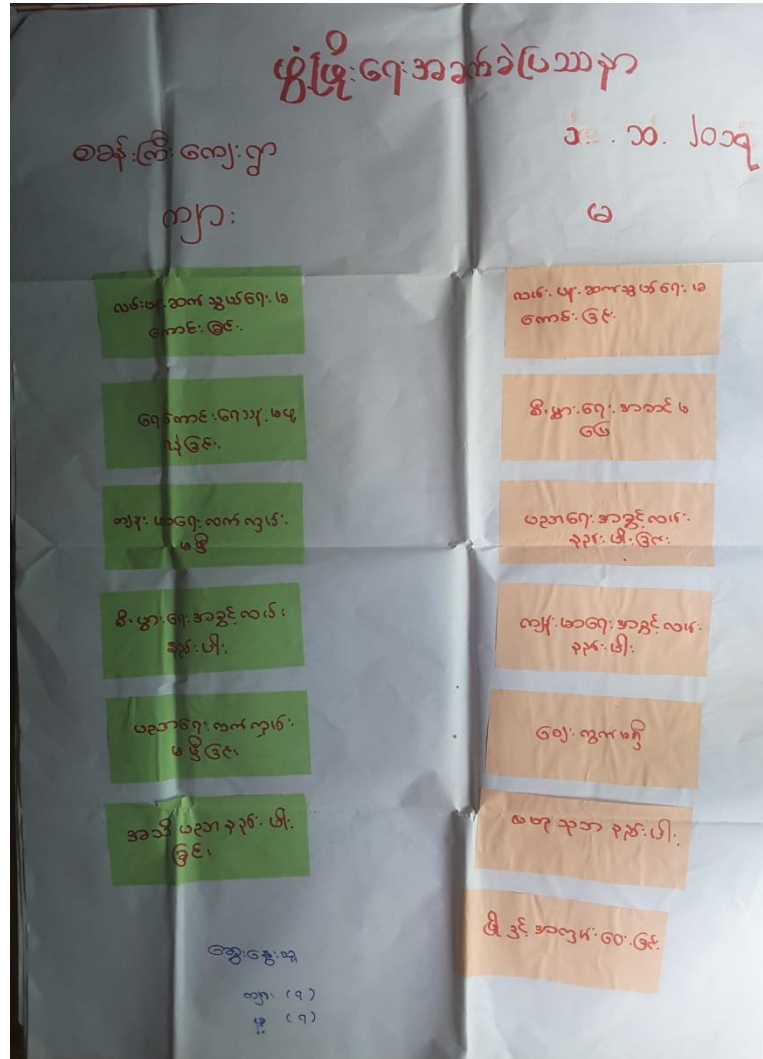 ဖွံ့ဖြိုးရေးအခက်ခဲပြဿနာ
စခန်းကြီးကျေးရွာ
ကျား
မ
လမ်းပန်းဆက်သွယ်ရေးမ
ကောင်းခြင်း
ရေကောင်းရေသန့်မရ
ယူခြင်း
ကျန်းမာရေးလက်လှမ်း
မမှီ
စီးပွားရေးအခွင့်လမ်း
နည်းပါး
ပညာရေးလက်လှမ်း
မမှီခြင်း
အသိပညာနည်းပါး
ခြင်း
လမ်းပန်းဆက်သွယ်ရေးမ
ကောင်းခြင်း
စီးပွားရေးအဆင်မ
ပြေ
ပညာရေးအခွင့်လမ်း
နည်းပါးခြင်း
ကျန်းမာရေးအခွင့်လမ်း
နည်းပါး
ဈေးကွက်မရှိ
ဗဟုသုတနည်းပါး
အလှမ်းဝေးခြင်း
ဆွေးနွေးသူ
ကျား (၇)
မ (၇)